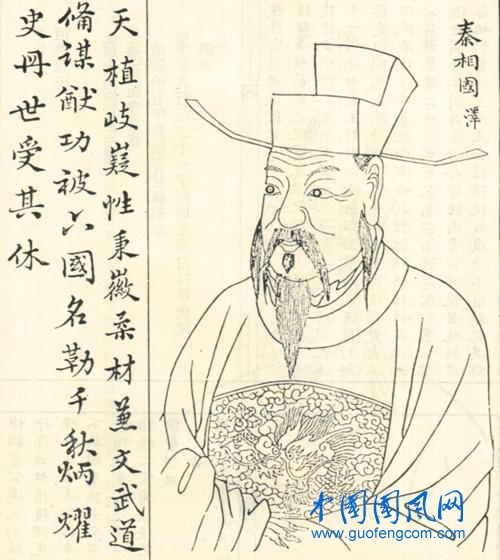 秦相國澤
天植岐嶷性秉徽柔材兼文武道
俻謀猷功被六國名勒千秋炳耀
史册世受其休
中国国风网
www.guofengcom.com